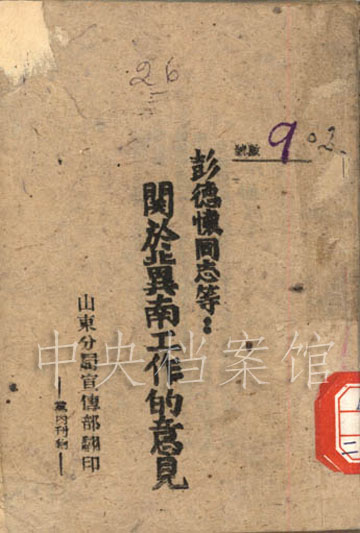 26
9 02
彭德懷同志等：
關於冀南工作的意見
山東分局宣傳部翻印
——黨內刊物——
中央档案馆
二